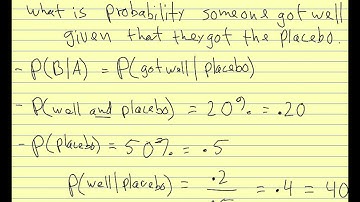 what is probability someone got well
given that they got the placebo.
- P(B|A) = P(got well | placebo)
- P(well and placebo) = 20% = .20
- P(placebo) = 50% = .5
P(well/placebo) = .2 / .5 = .4 = 40